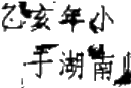 乙亥年小
于湖南